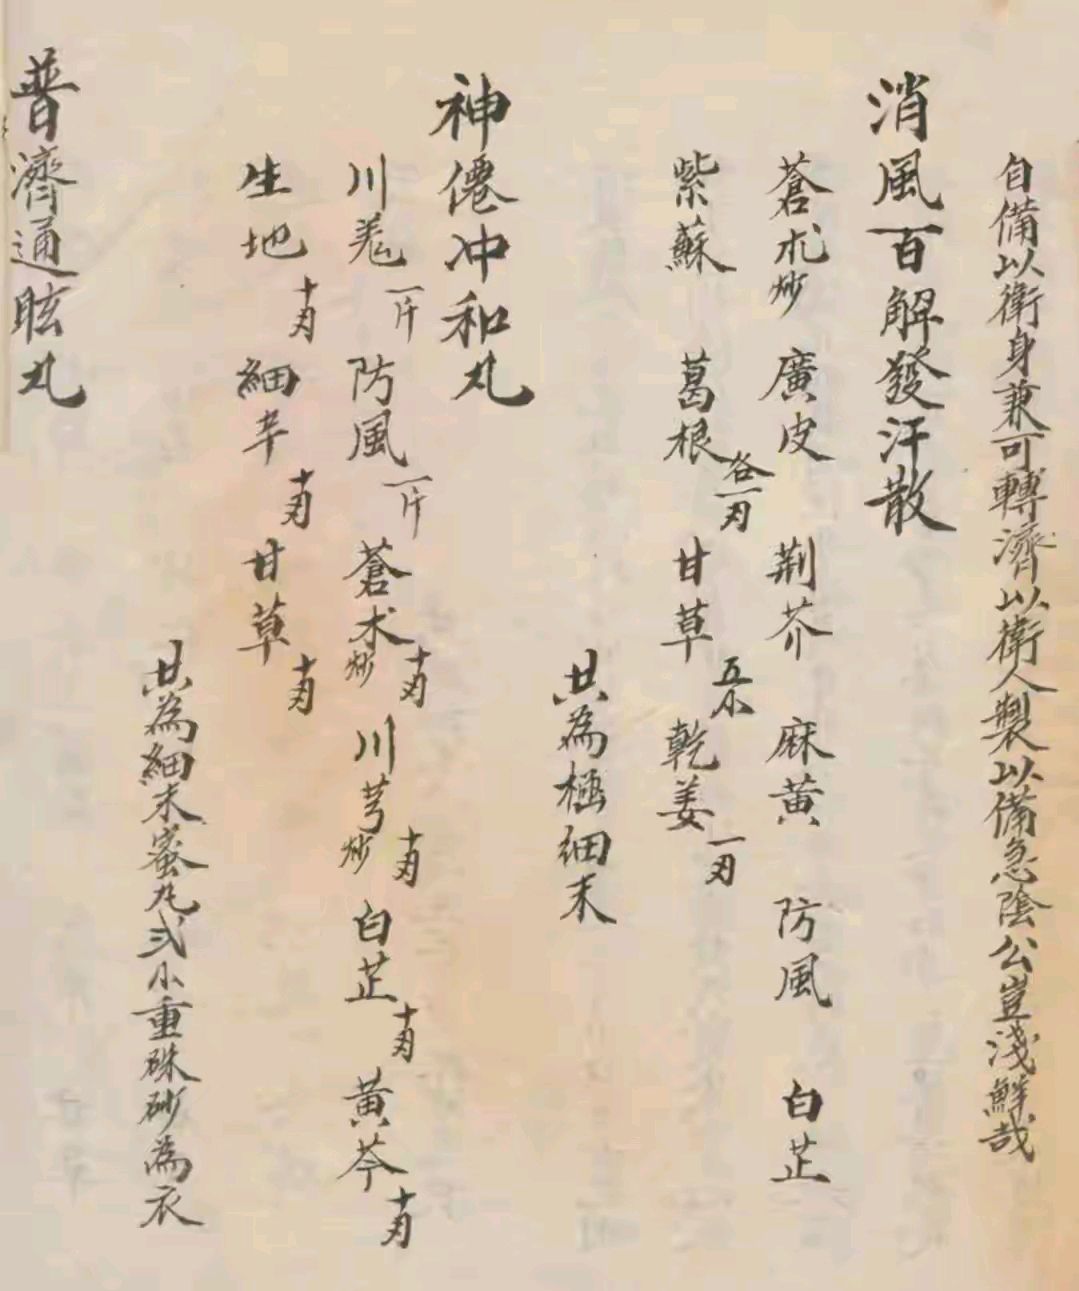 自備以衛身兼可轉濟以衛人製以備急陰公豈淺鮮哉
消風百解發汗散
蒼朮炒 廣皮 荊芥 麻黃 防風 白芷
紫蘇 葛根各一刄 甘草五小 乾姜一刄
共為極細末
神僊冲和丸
川羗一斤 防風一斤 蒼术炒十刄 川芎炒十刄 白芷十刄 黃芩十刄
生地十刄 細辛十刄 甘草十刄
共為細末蜜丸弍小重硃砂為衣
普濟通眩丸